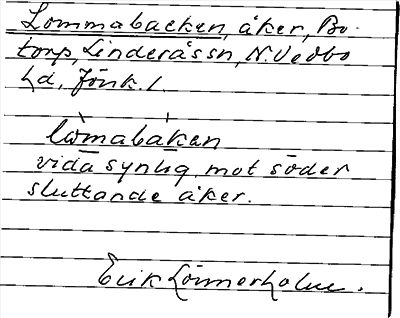 Lommabacken, åker, Bo-
torp, Linderås sn, N. Vedbo
hd, Jönk. l.
låmabakan
vida synlig, mot söder
sluttande åker.
Erik Lönnerholm.